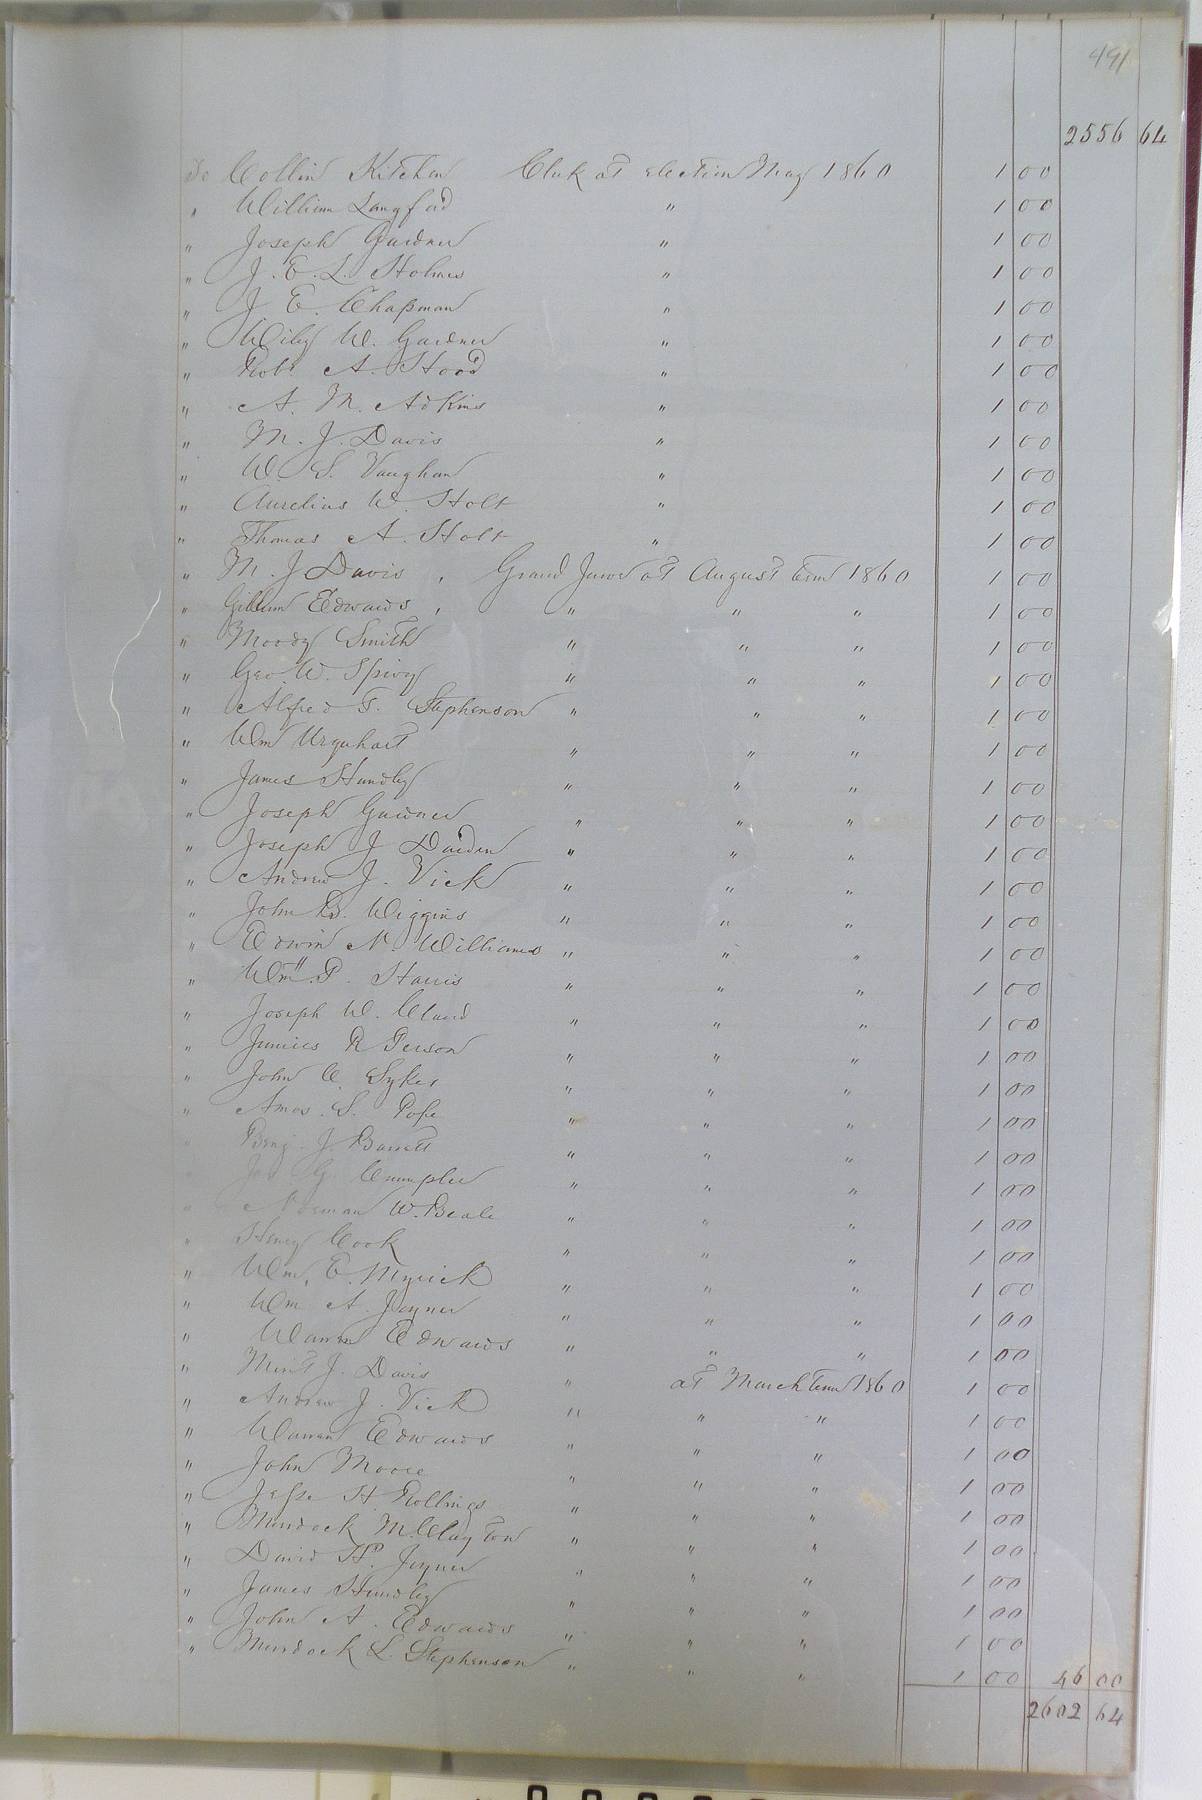 491
2556 64
Do Collin Kitchen Clerk at election May 1860 1 00
" William Langford " 1 00
" Joseph Gardner " 1 00
" J. E. L. Holmes " 1 00
" J E. Chapman " 1 00
" Wiley W. Gardner " 1 00
" Robt A. Hood " 1 00
" A. M. Adkins " 1 00
" M. J. Davis " 1 00
" W. S. Vaughan " 1 00
" Aurelius W. Holt " 1 00
" Thomas A. Holt " 1 00
" M. J Davis , Grand Juror at August term 1860 1 00
" Gillum Edwards , " " " 1 00
" Moody Smith " " " 1 00
" Geo. W. Spivy " " " 1 00
" Alfred T. Stephenson " " " 1 00
" Wm Urquhart " " " 1 00
" James Hundley " " " 1 00
" Joseph Gardner " " " 1 00
" Joseph J Darden " " " 1 00
" Andrew J. Vick " " " 1 00
" John D. Wiggins " " " 1 00
" Edwin N. Williams " " " 1 00
" Wm. P. Harris " " " 1 00
" Joseph W. Claud " " " 1 00
" Junius R Person " " " 1 00
" John C. Sykes " " " 1 00
" Amos. S. Pope " " " 1 00
" Benj. J. Barrett " " " 1 00
" Jos G Crumpler " " " 1 00
" Norman W. Beale " " " 1 00
" Henry Cook " " " 1 00
" Wm. E. Myrick " " " 1 00
" Wm A. Joyner " " " 1 00
" Warren Edwards " " " 1 00
" Merit J. Davis " at March term 1860 1 00
" Andrew J. Vick " " " 1 00
" Warren Edwards " " " 1 00
" John Moore " " " 1 00
" Jesse H. Rollings " " " 1 00
" Murdock M. Clayton " " " 1 00
" David H. Joyner " " " 1 00
" James Hundley " " " 1 00
" John A. Edwards " " " 1 00
" Murdock L. Stephenson " " " 1 00 46 00
2602 64